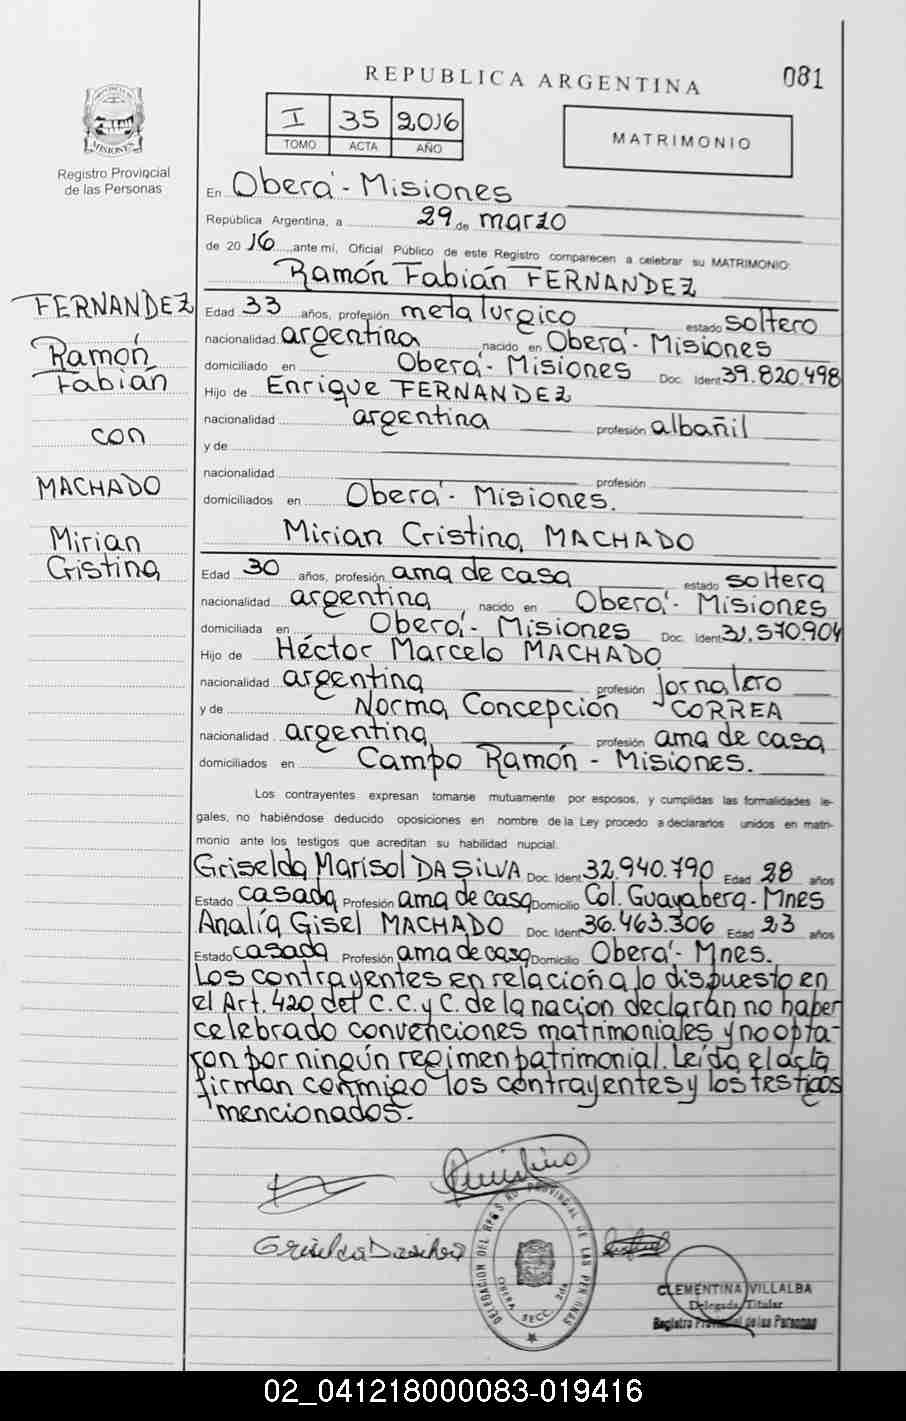 REPUBLICA ARGENTINA 081
I 35 2016
TOMO ACTA AÑO
MATRIMONIO
MISIONES
Registro Provincial
de las Personas
En Oberá - Misiones
República Argentina, a 29 de marzo
de 2016 ante mí, Oficial Público de este Registro comparecen a celebrar su MATRIMONIO:
Ramón Fabián FERNANDEZ
FERNANDEZ
Ramón
Fabián
con
MACHADO
Mirian
Cristina
Edad 33 años, profesión metalurgico estado soltero
nacionalidad argentina nacido en Oberá - Misiones
domiciliado en Oberá - Misiones Doc. Ident 39.820.498
Hijo de Enrique FERNANDEZ
nacionalidad argentina profesión albañil
y de
nacionalidad profesión
domiciliados en Oberá - Misiones.
Mirian Cristina MACHADO
Edad 30 años, profesión ama de casa estado soltera
nacionalidad argentina nacido en Oberá - Misiones
domiciliada en Oberá - Misiones Doc. Ident 31.570.904
Hijo de Héctor Marcelo MACHADO
nacionalidad argentina profesión jornalero
y de Norma Concepción CORREA
nacionalidad argentina profesión ama de casa
domiciliados en Campo Ramón - Misiones.
Los contrayentes expresan tomarse mutuamente por esposos, y cumplidas las formalidades le-
gales, no habiéndose deducido oposiciones en nombre de la Ley procedo a declararlos unidos en matri-
monio ante los testigos que acreditan su habilidad nupcial:
Griselda Marisol DA SILVA Doc. Ident 32.940.790 Edad 28 años
Estado casada Profesión ama de casa Domicilio Col. Guayabera - Mnes
Analía Gisel MACHADO Doc. Ident 36.463.306 Edad 23 años
Estado casada Profesión ama de casa Domicilio Oberá - Mnes.
Los contrayentes en relación a lo dispuesto en
el Art. 420 del C.C. y C. de la nacion declaran no haber
celebrado convenciones matrimoniales y no opta-
ron por ningún regimen patrimonial. Leída el acta
firman conmigo los contrayentes y los testigos
mencionados.-
DELEGACION DEL REGISTRO PROVINCIAL DE LAS PERSONAS
OBERA, SECC. 2da
CLEMENTINA VILLALBA
Delegada Titular
Registro Provincial de las Personas
02_041218000083-019416